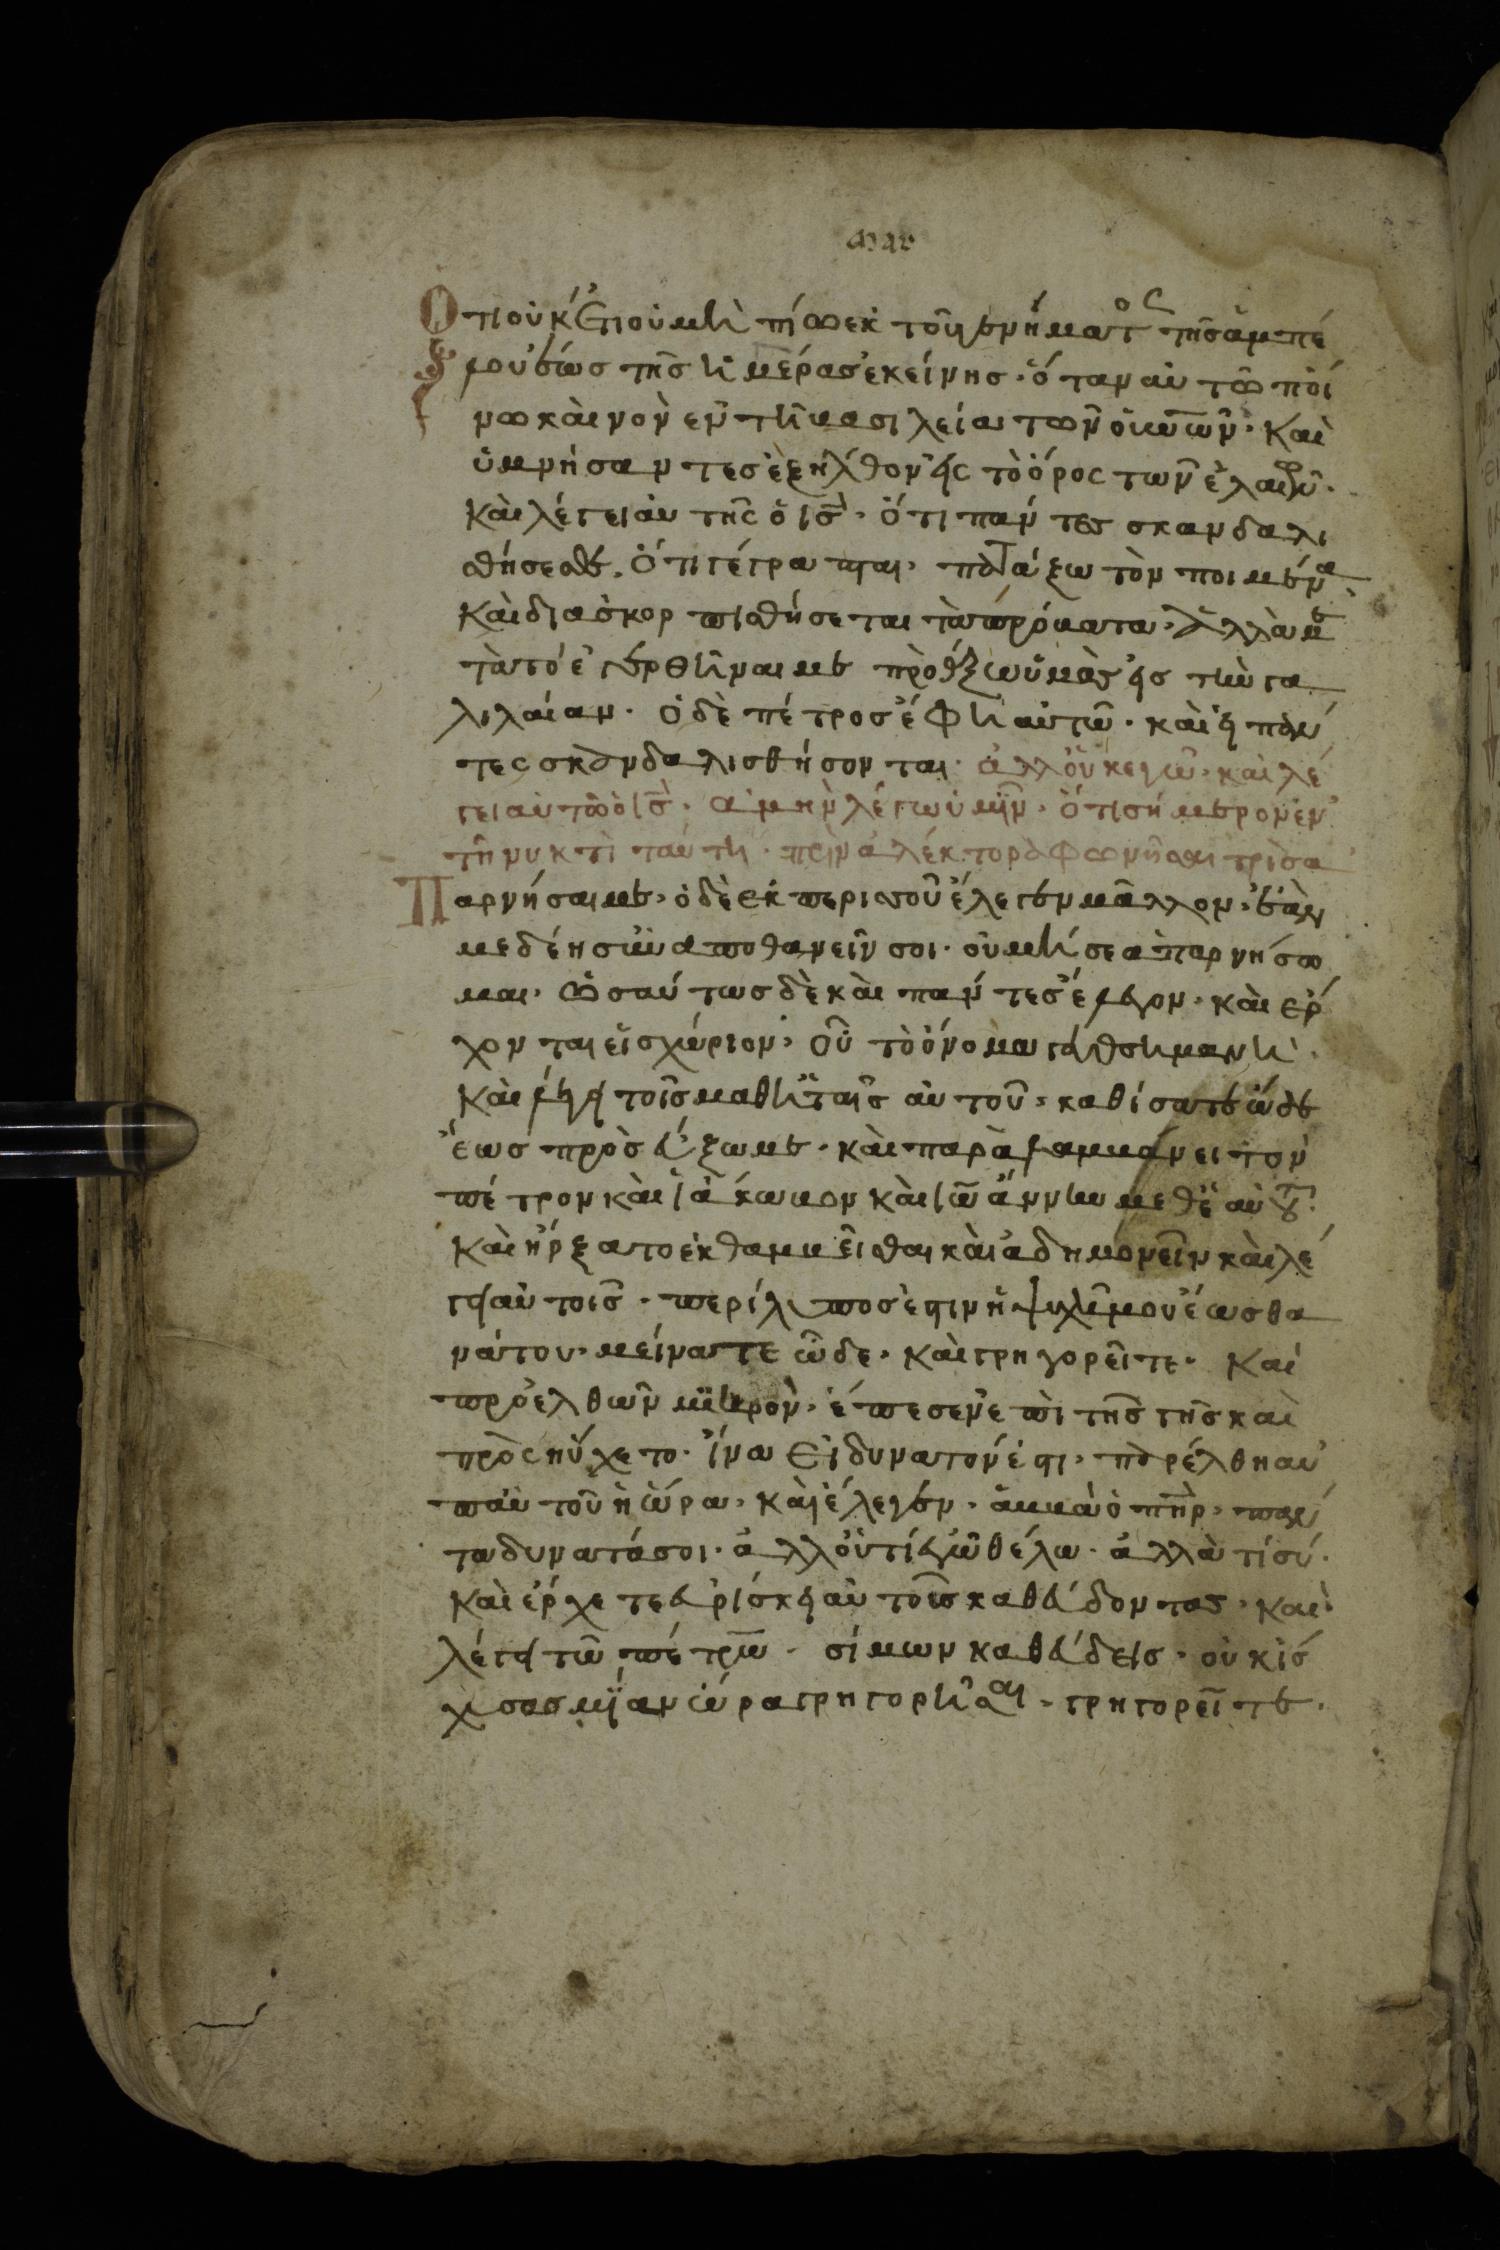 μαρ
Ὅτι οὐκ έτι οὐ μὴ πίω ἐκ τοῦ γενήματος τῆς ἀμπέ
λου ἕως τῆς ἡμέρας ἐκείνης· ὅταν αὐτῶ πί
νω καινὸν ἐν τῆ βασιλεία τῶν οὐνῶν· Καὶ
ὑμνήσαντες ἐξήλθον εἰς τὸ ὄρος τῶν ἐλαιῶν·
Καὶ λέγει αὐτῆς ὁ ις· Ὅτι πάντες σκανδαλι
σθήσεσθε. Ὅτι γέγραπται· πατάξω τὸν ποιμένα
Καὶ διασκορπισθήσεται τὰ πρόβατα· Ἀλλὰ με
τὰ τὸ ἐγερθῆναι με προάξω ὑμᾶς εἰς τὴν γα
λιλαίαν. Ὁ δὲ πέτρος ἔφη αὐτῶ· καὶ εἰ πάν
τες σκανδαλισθήσονται· ἀλλ οὐκ εγὼ· καὶ λέ
γει αὐτῶ ὁ ις· ἀμὴν λέγω ὑμῖν· ὅτι σήμερον ἐν
τῆ νυκτὶ ταύτη· πρὶν ἀλέκτορα φωνῆσαι τρὶς α
Παρνήσαι με· ὁ δὲ ἐκ περισσοῦ ἔλεγεν μᾶλλον· ἐὰν
με δέη σὺν αποθανεῖν σοι· οὐ μή σε ἀπαρνήσω
μαι· Ὡσαύτως δὲ καὶ πάντες ἔλεγον· καὶ ἔρ
χονται εἰς χώριον· Οὗ τὸ ὄνομα γεθσημανὴ·
Καὶ λέγει τοῖς μαθηταῖς αὐτοῦ· καθίσατε ὧδε
ἕως προσεύξωμε· καὶ παραλαμβάνει τὸν
πέτρον καὶ ἰάκωβον καὶ ἰωάννην μεθ ἑαυτοῦ·
Καὶ ἤρξατο ἐκθαμβεῖσθαι καὶ ἀδημονεῖν καὶ λέ
γει αὐτοῖς· περίλυπος ἐστιν ἡ ψυχή μου ἕως θα
νάτου· μείνατε ὧδε· καὶ γρηγορεῖτε· Καὶ
προελθὼν μικρὸν· ἔπεσεν ἐπὶ τῆς γῆς καὶ
προσηύχετο· ἵνα εἰ δυνατόν ἐστι· παρέλθη αὐ
π αὐτοῦ ἡ ὥρα· καὶ ἔλεγεν· ἀββὰ ὁ πηρ· πάν
τα δυνατά σοι· ἀλλ οὐ τί ἐγὼ θέλω· ἀλλὰ τί σύ·
Καὶ ἔρχετε εὑρίσκει αὐτοὺς καθεύδοντας· Καὶ
λέγει τῶ πέτρω· σίμων καθεύδεις· οὐκ ἰσ
χυσας μίαν ὥρα γρηγορῆσαι· γρηγορεῖτε·